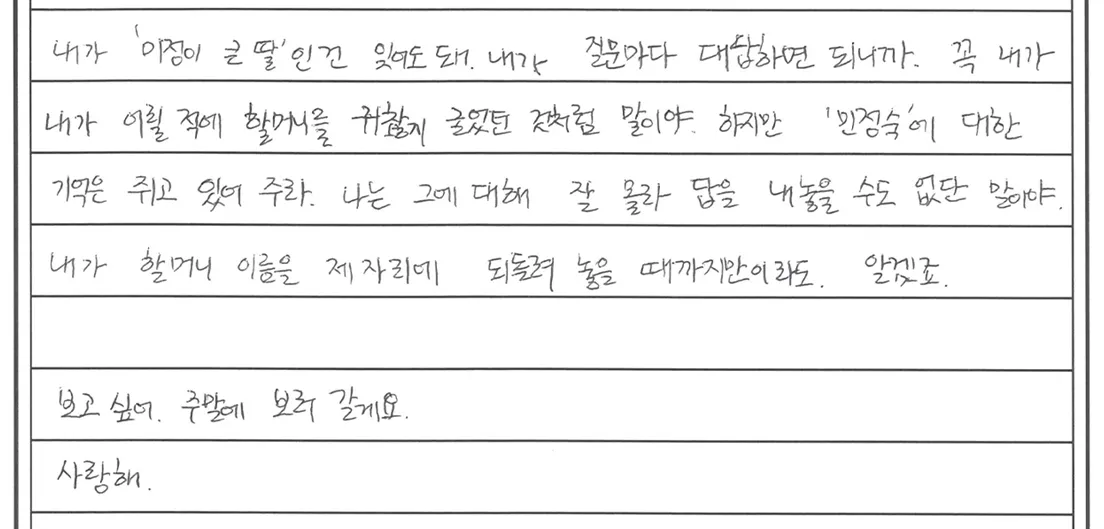 내가 '이정이 큰 딸'인건 잊어도 돼. 내가 질문마다 대답하면 되니까. 꼭 내가
내가 어릴 적에 할머니를 귀찮게 굴었던 것처럼 말이야. 하지만 '민정숙'에 대한
기억은 쥐고 있어 주라. 나는 그에 대해 잘 몰라 답을 내놓을 수도 없단 말이야.
내가 할머니 이름을 제자리에 되돌려 놓을 때까지만이라도. 알겠죠.
보고 싶어. 주말에 보러 갈게요.
사랑해.